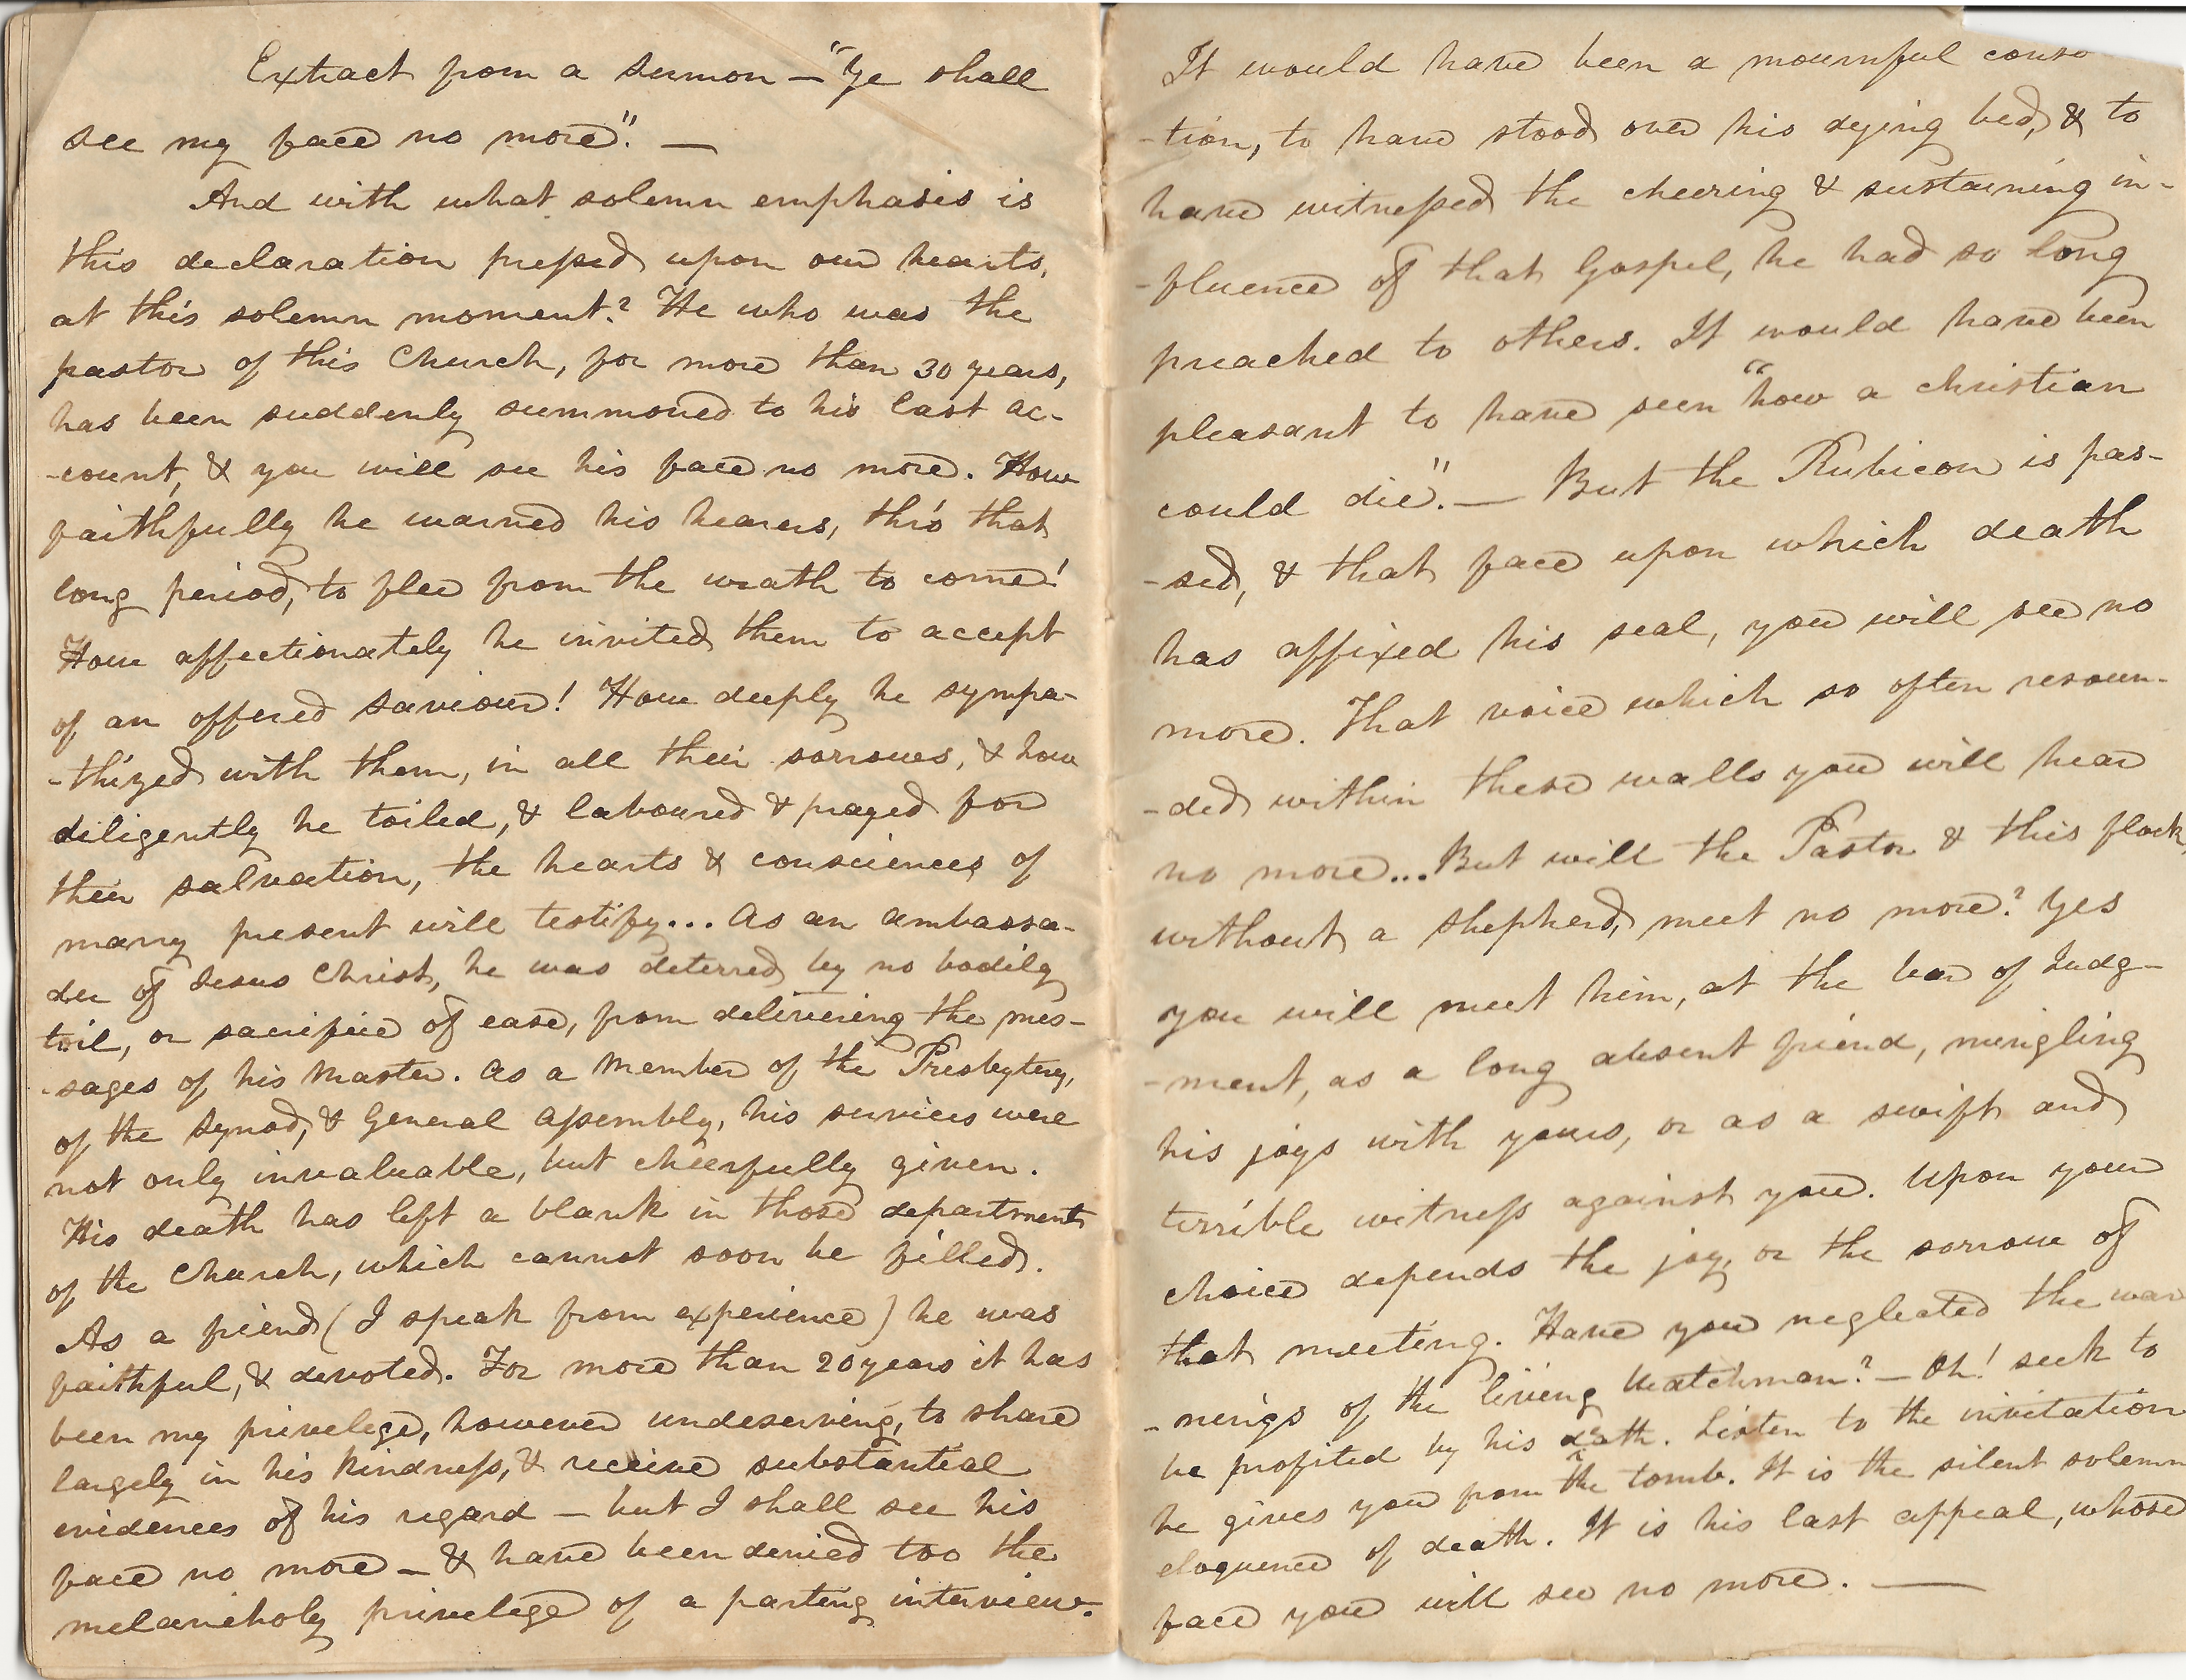 Extract from a sermon — "Ye shall
see my face no more". —
And with what solemn emphasis is
this declaration pressed upon our hearts,
at this solemn moment? He who was the
pastor of this Church, for more than 30 years,
has been suddenly summoned to his last ac-
-count, & you will see his face no more. How
faithfully he warned his hearers, thro' that
long period, to flee from the wrath to come!
How affectionately he invited them to accept
of an offered Saviour! How deeply he sympa-
-thized with them, in all their sorrows, & how
diligently he toiled, & laboured & prayed for
their salvation, the hearts & consciences of
many present will testify... As an ambassa-
dor of Jesus Christ, he was deterred by no bodily
toil, or sacrifice of ease, from delivering the mes-
-sages of his Master. As a Member of the Presbytery,
of the Synod, & General Assembly, his services were
not only invaluable, but cheerfully given.
His death has left a blank in those departments
of the Church, which cannot soon be filled.
As a friend (I speak from experience) he was
faithful, & devoted. For more than 20 years it has
been my privelege, however undeserving, to share
largely in his kindness, & receive substantial
evidences of his regard — but I shall see his
face no more — & have been denied too the
melancholy privelege of a parting interview.
It would have been a mournful conso
-tion, to have stood over his dying bed, & to
have witnessed the cheering & sustaining in-
-fluence of that Gospel, he had so long
preached to others. It would have been
pleasant to have seen "how a christian
could die". — But the Rubicon is pas-
-sed, & that face upon which death
has affixed his seal, you will see no
more. That voice which so often resoun-
-ded within these walls you will hear
no more... But will the Pastor & this flock,
without a shepherd, meet no more? Yes
you will meet him, at the bar of Judg-
-ment, as a long absent friend, mingling
his joys with yours, or as a swift and
terrible witness against you. Upon your
choice depends the joy, or the sorrow of
that meeting. Have you neglected the war
-nings of the living Watchman? — Oh! seek to
be profited by his death. Listen to the invitation
he gives you from the tomb. It is the silent solemn
eloquence of death. It is his last appeal, whose
face you will see no more. —